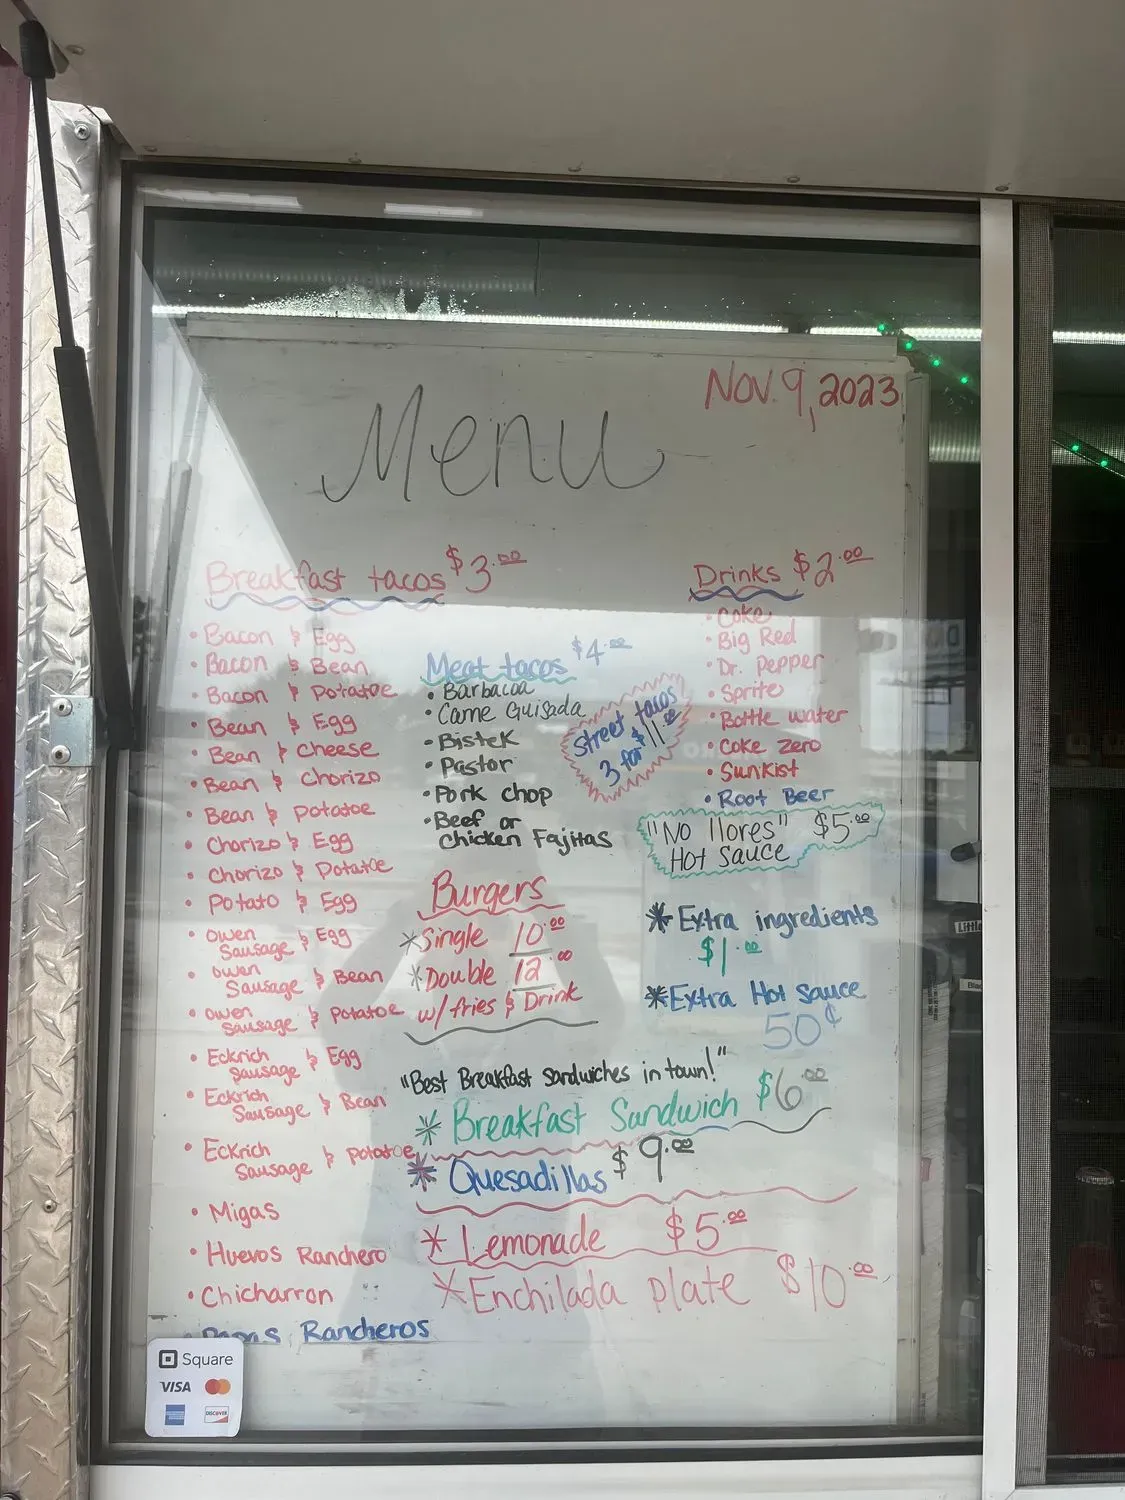 Menu
Nov. 9, 2023
Breakfast tacos $3.00
• Bacon & Egg
• Bacon & Bean
• Bacon & Potatoe
• Bean & Egg
• Bean & Cheese
• Bean & Chorizo
• Bean & Potatoe
• Chorizo & Egg
• Chorizo & Potatoe
• Potato & Egg
• Owen
Sausage & Egg
• Owen
Sausage & Bean
• Owen
Sausage & Potatoe
• Eckrich
Sausage & Egg
• Eckrich
Sausage & Bean
• Eckrich
Sausage & Potatoe
• Migas
• Huevos Ranchero
• Chicharron
• Papas Rancheros
Meat tacos $4.00
• Barbacoa
• Carne Guisada
• Bistek
• Pastor
• Pork chop
• Beef or
chicken Fajitas
Street tacos
3 for $11.00
Burgers
*Single 10.00
*Double 12.00
w/ fries & Drink
"Best Breakfast Sandwiches in town!"
* Breakfast Sandwich $6.00
* Quesadillas $9.00
* Lemonade $5.00
* Enchilada plate $10.00
Drinks $2.00
• Coke
• Big Red
• Dr. Pepper
• Sprite
• Bottle water
• Coke zero
• Sunkist
• Root Beer
"No llores" $5.00
Hot Sauce
* Extra ingredients
$1.00
* Extra Hot Sauce
50¢
Square
VISA
DISCOVER